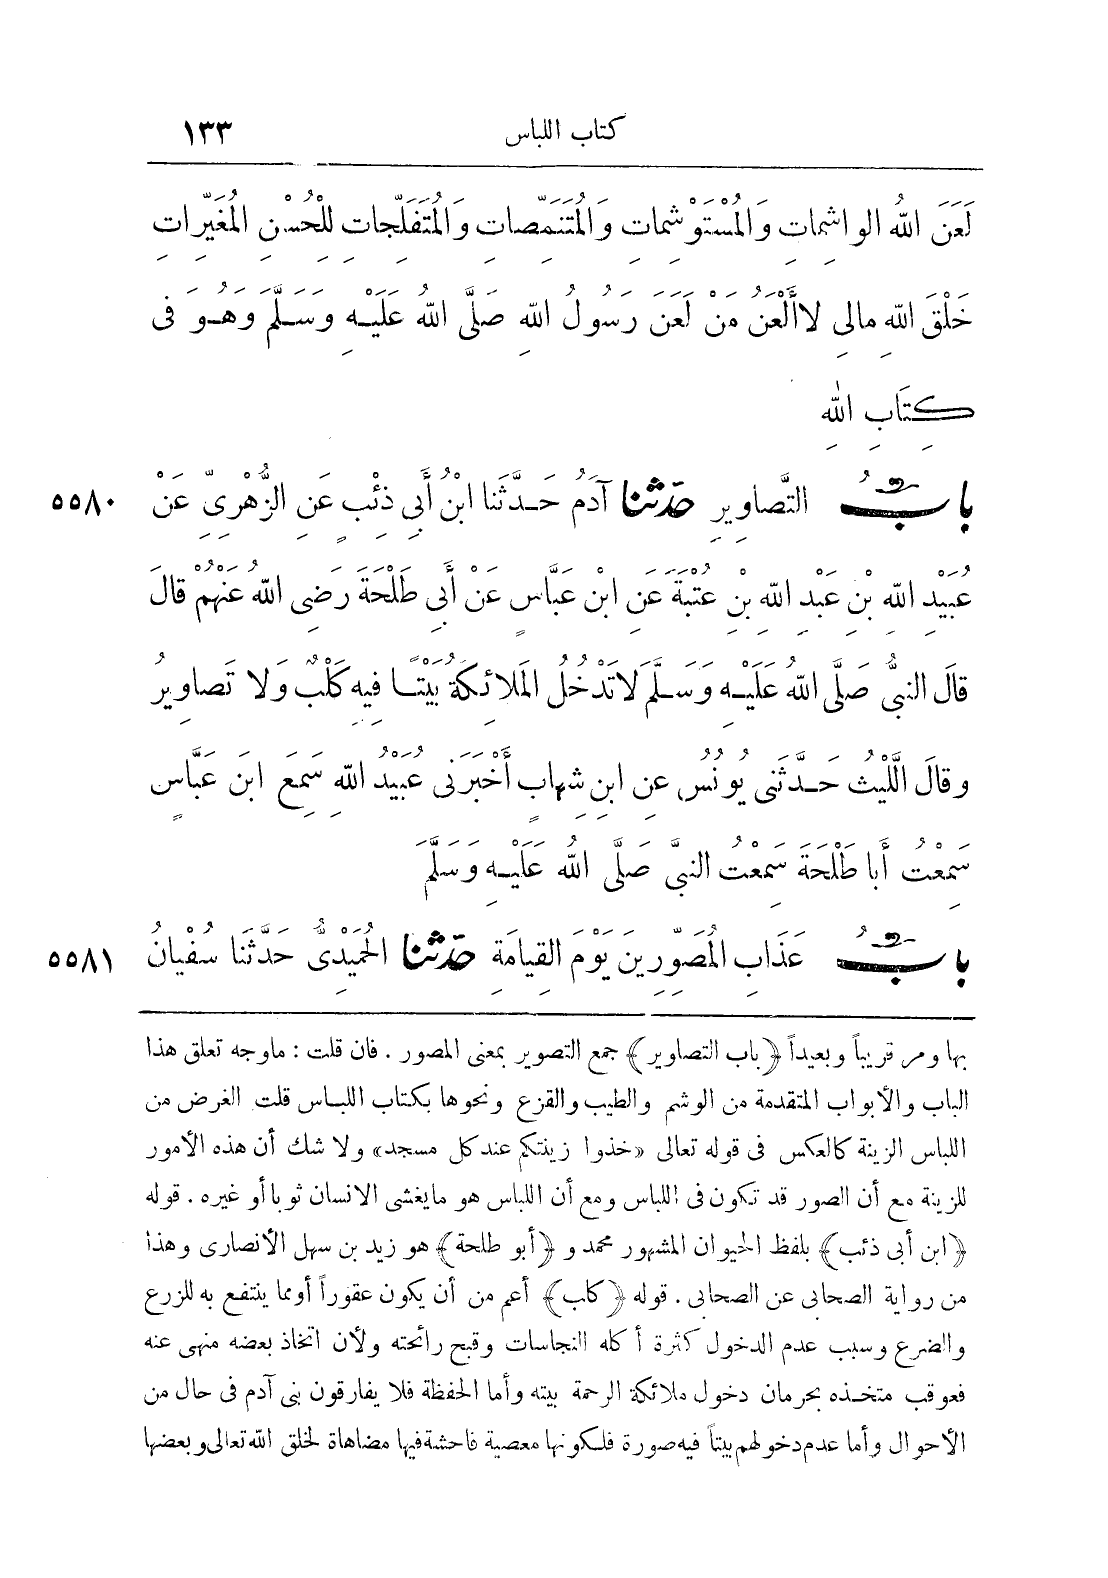 كتاب اللباس ١٣٣
لَعَنَ اللهُ الواشِمَاتِ وَالْمُسْتَوْشِمَاتِ وَالْمُتَنَمِّصَاتِ وَالْمُتَفَلِّجَاتِ لِلْحُسْنِ الْمُغَيِّرَاتِ
خَلْقَ اللهِ مالِي لا أَلْعَنُ مَنْ لَعَنَ رَسُولُ اللهِ صَلَّى اللهُ عَلَيْهِ وَسَلَّمَ وَهُوَ فى
كِتَابِ اللهِ
بابُ التَّصَاوِيرِ حدثنا آدَمُ حَدَّثَنَا ابْنُ أَبِي ذِئْبٍ عَنِ الزُّهْرِيِّ عَنْ ٥٥٨٠
عُبَيْدِ اللهِ بْنِ عَبْدِ اللهِ بْنِ عُتْبَةَ عَنِ ابْنِ عَبَّاسٍ عَنْ أَبِي طَلْحَةَ رَضِى اللهُ عَنْهُمْ قالَ
قالَ النبيُّ صَلَّى اللهُ عَلَيْهِ وَسَلَّمَ لاتَدْخُلُ المَلائِكَةُ بَيْتًا فِيهِ كَلْبٌ وَلا تَصاوِيرُ
وقالَ اللَّيْثُ حَدَّثَنِى يُونُسُ عنِ ابنِ شِهابٍ أَخْبَرَنى عُبَيْدُ اللهِ سَمِعَ ابنَ عَبَّاسٍ
سَمِعْتُ أَبا طَلْحَةَ سَمِعْتُ النبيَّ صَلَّى اللهُ عَلَيْهِ وَسَلَّمَ
بابُ عَذَابِ الْمُصَوِّرِينَ يَوْمَ القِيامَةِ حدثنا الْحُمَيْدِىُّ حَدَّثَنَا سُفْيانُ ٥٥٨١
بها ومر قريباً وبعيداً ﴿باب التصاوير﴾ جمع التصوير بمعنى المصور. فان قلت: ماوجه تعلق هذا
الباب والأبواب المتقدمة من الوشم والطيب والقزع ونحوها بكتاب اللباس قلت الغرض من
اللباس الزينة كالعكس فى قوله تعالى «خذوا زينتكم عند كل مسجد» ولا شك أن هذه الأمور
للزينة مع أن الصور قد تكون فى اللباس ومع أن اللباس هو مايغشى الانسان ثوبا أو غيره. قوله
﴿ابن أبى ذئب﴾ بلفظ الحيوان المشهور محمد و ﴿أبو طلحة﴾ هو زيد بن سهل الأنصارى وهذا
من رواية الصحابى عن الصحابى. قوله ﴿كلب﴾ أعم من أن يكون عقوراً أومما ينتفع به للزرع
والضرع وسبب عدم الدخول كثرة أكله النجاسات وقبح رائحته ولأن اتخاذ بعضه منهى عنه
فعوقب متخذه بحرمان دخول ملائكة الرحمة بيته وأما الحفظة فلا يفارقون بنى آدم فى حال من
الأحوال وأما عدم دخولهم بيتاً فيه صورة فلكونها معصية فاحشة فيها مضاهاة لخلق الله تعالى وبعضها